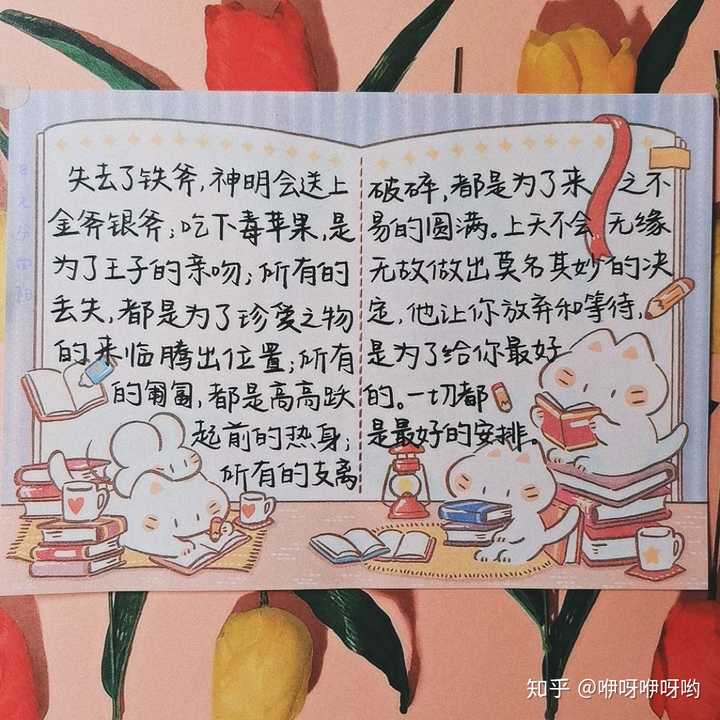 失去了铁斧，神明会送上
金斧银斧；吃下毒苹果，是
为了王子的亲吻；所有的
丢失，都是为了珍爱之物
的来临腾出位置；所有
的匍匐，都是高高跃
起前的热身；
所有的支离
破碎，都是为了来之不
易的圆满。上天不会无缘
无故做出莫名其妙的决
定，他让你放弃和等待，
是为了给你最好
的。一切都
是最好的安排。
知乎 @咿呀咿呀哟